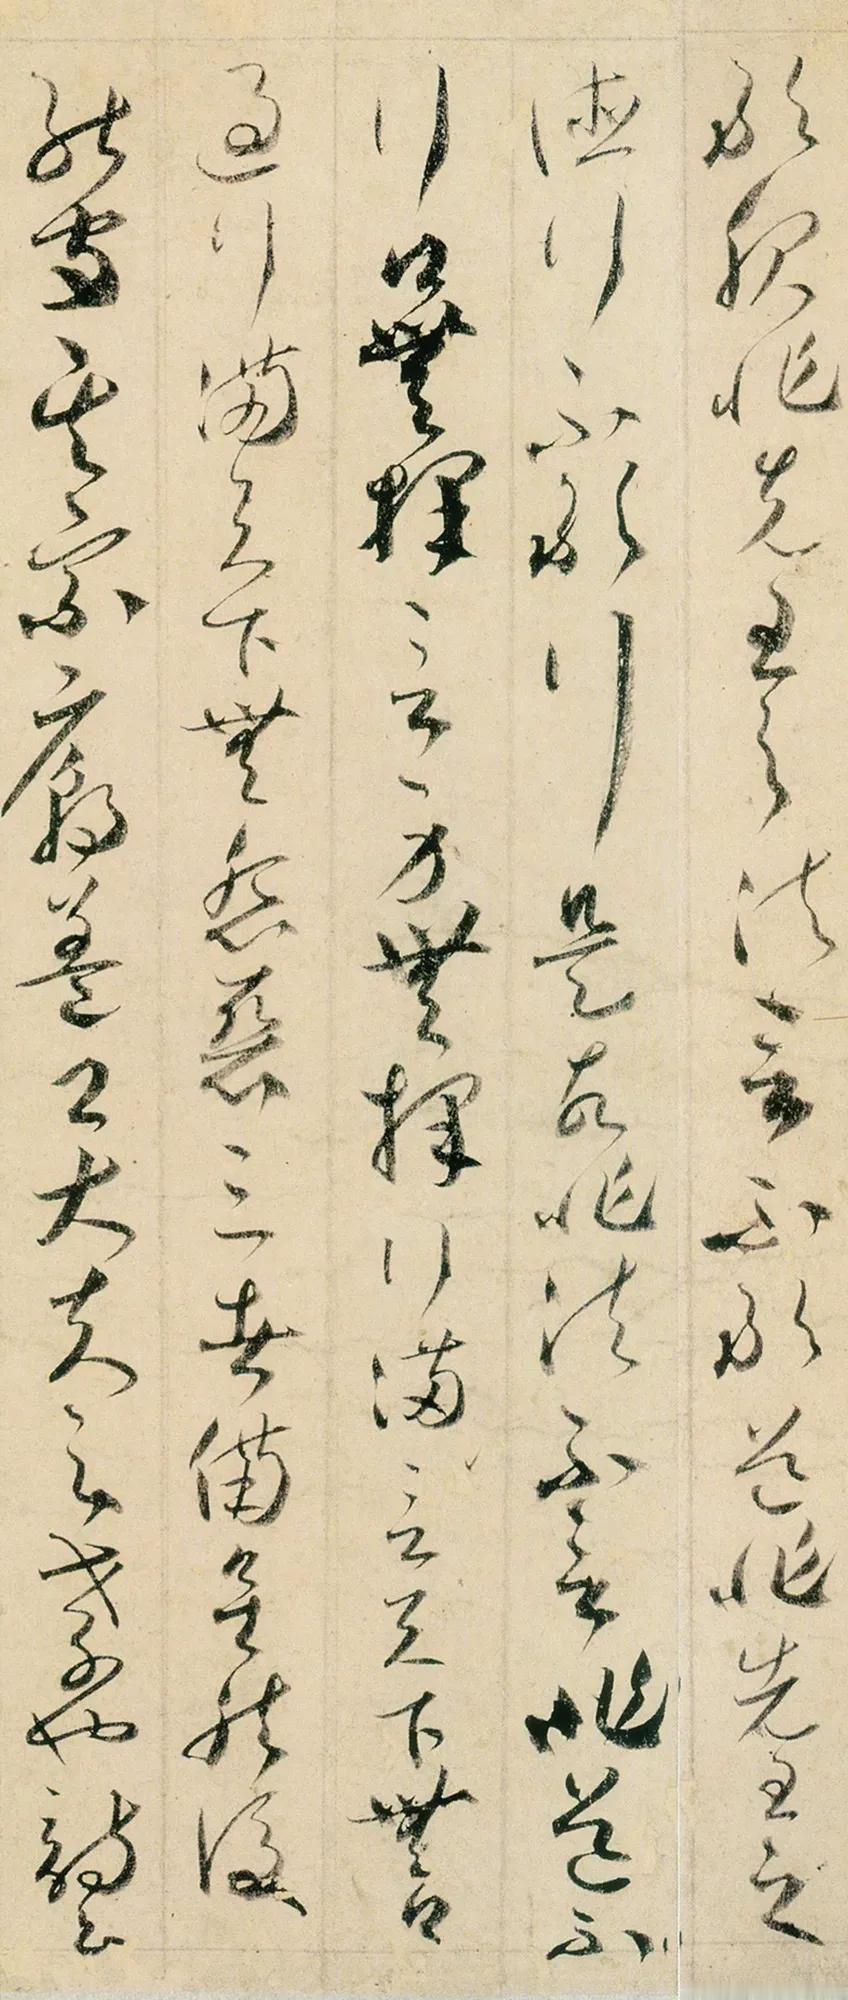 敢服非先王之法言不敢道非先王之
德行不敢行是故非法不言非道不
行口無擇言身無擇行滿言天下無口
過行滿天下無怨惡三者備矣然後
能守其宗廟蓋卿大夫之孝也詩云